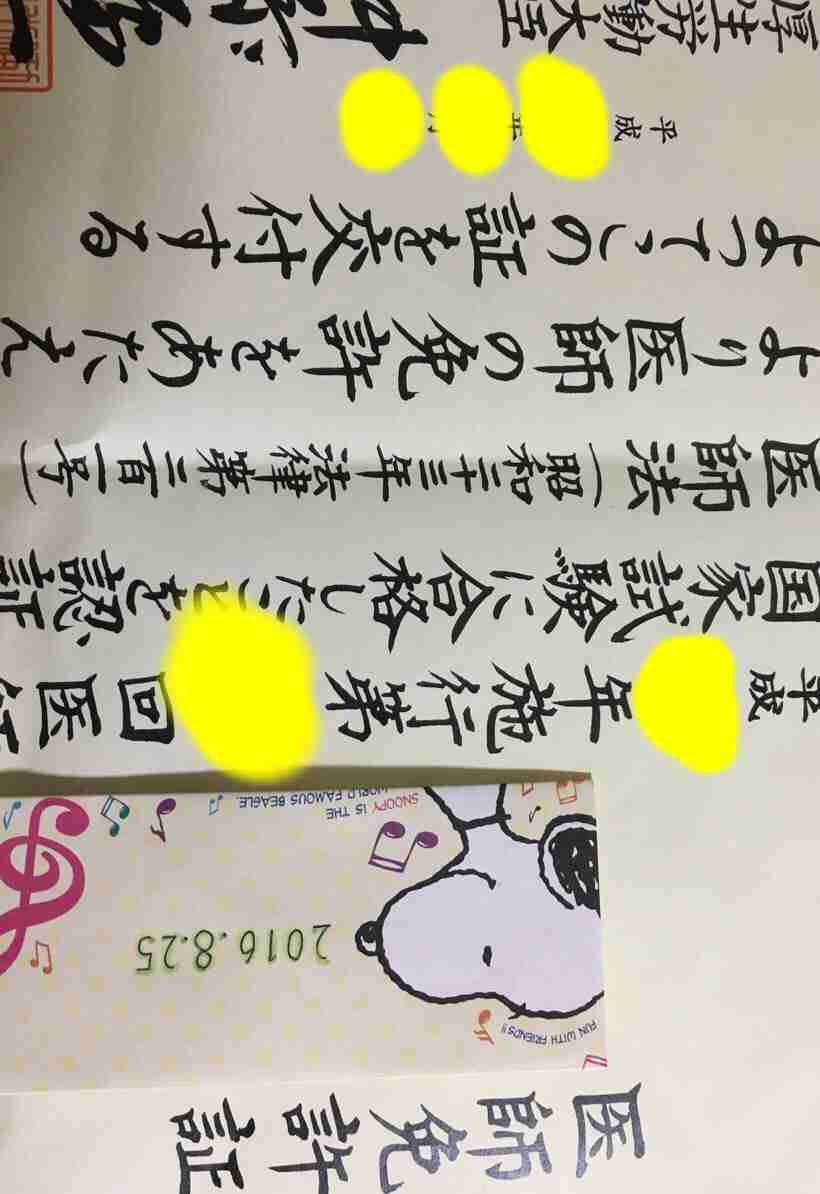 医師免許証
FUN WITH FRIENDS!!
2016.8.25
SNOOPY IS THE
WORLD FAMOUS BEAGLE.
平成 年施行第 回医師
国家試験に合格したことを認証
医師法（昭和二十三年法律第二百一号）
より医師の免許をあたえ
よってこの証を交付する
平成 年 月
厚生労働大臣